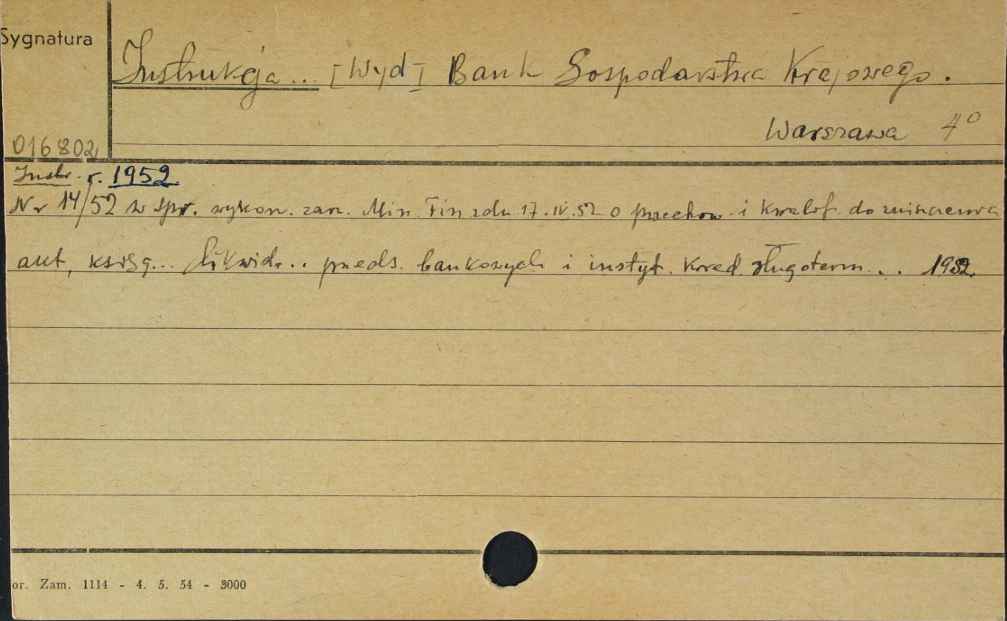 Sygnatura
Instrukcja... [Wyd] Bank Gospodarstwa Krajowego.
Warszawa 4°
016802
Instr. r. 1952
Nr 14/52 w spr. wykon. zarz. Min. Fin z dn 17.IV.52 o przechow. i kwalif. do zniszczenia
akt, ksiąg... likwid.. przeds. bankowych i instyt. kred długoterm... 1952.
or. Zam. 1114 - 4. 5. 54 - 3000